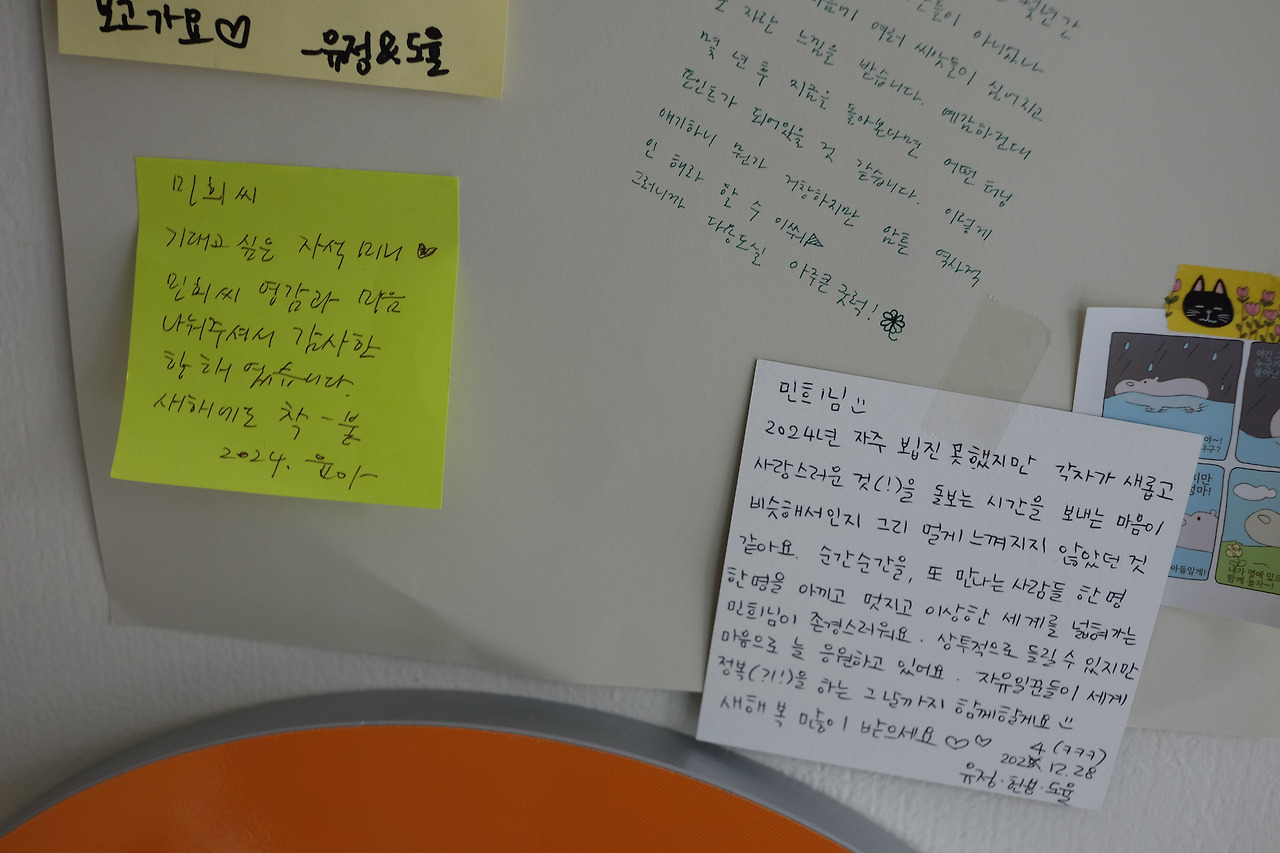 보고가요♡
유정&도율
민희씨
기대고 싶은 자석 미니 ♥
민희씨 영감과 마음
나눠주셔서 감사한
한 해 였습니다.
새해에도 착-붙
2024. 윤아
몇년간
아니었나
여러 씨앗들이 심어지고
자란 느낌을 받습니다. 예감하건대
몇 년 후 지금을 돌아본다면 어떤 터닝
포인트가 되어있을 것 같습니다. 이렇게
얘기하니 뭔가 거창하지만 암튼 역사적
인 해라 할 수 이쒀
그러니까 다용도실 아주큰 굿럭!
민희님
2024년 자주 뵙진 못했지만 각자가 새롭고
사랑스러운 것(!)을 돌보는 시간을 보내는 마음이
비슷해서인지 그리 멀게 느껴지지 않았던 것
같아요. 순간순간을, 또 만나는 사람들 한명
한명을 아끼고 멋지고 이상한 세계를 넓혀가는
민희님이 존경스러워요. 상투적으로 들릴 수 있지만
마음으로 늘 응원하고 있어요. 자유일꾼들이 세계
정복(?!!)을 하는 그날까지 함께할게요
새해 복 많이 받으세요 ♡♡
4 (ㅋㅋㅋ)
2024.12.28
유정·헌용·도율
함께 놀자~!